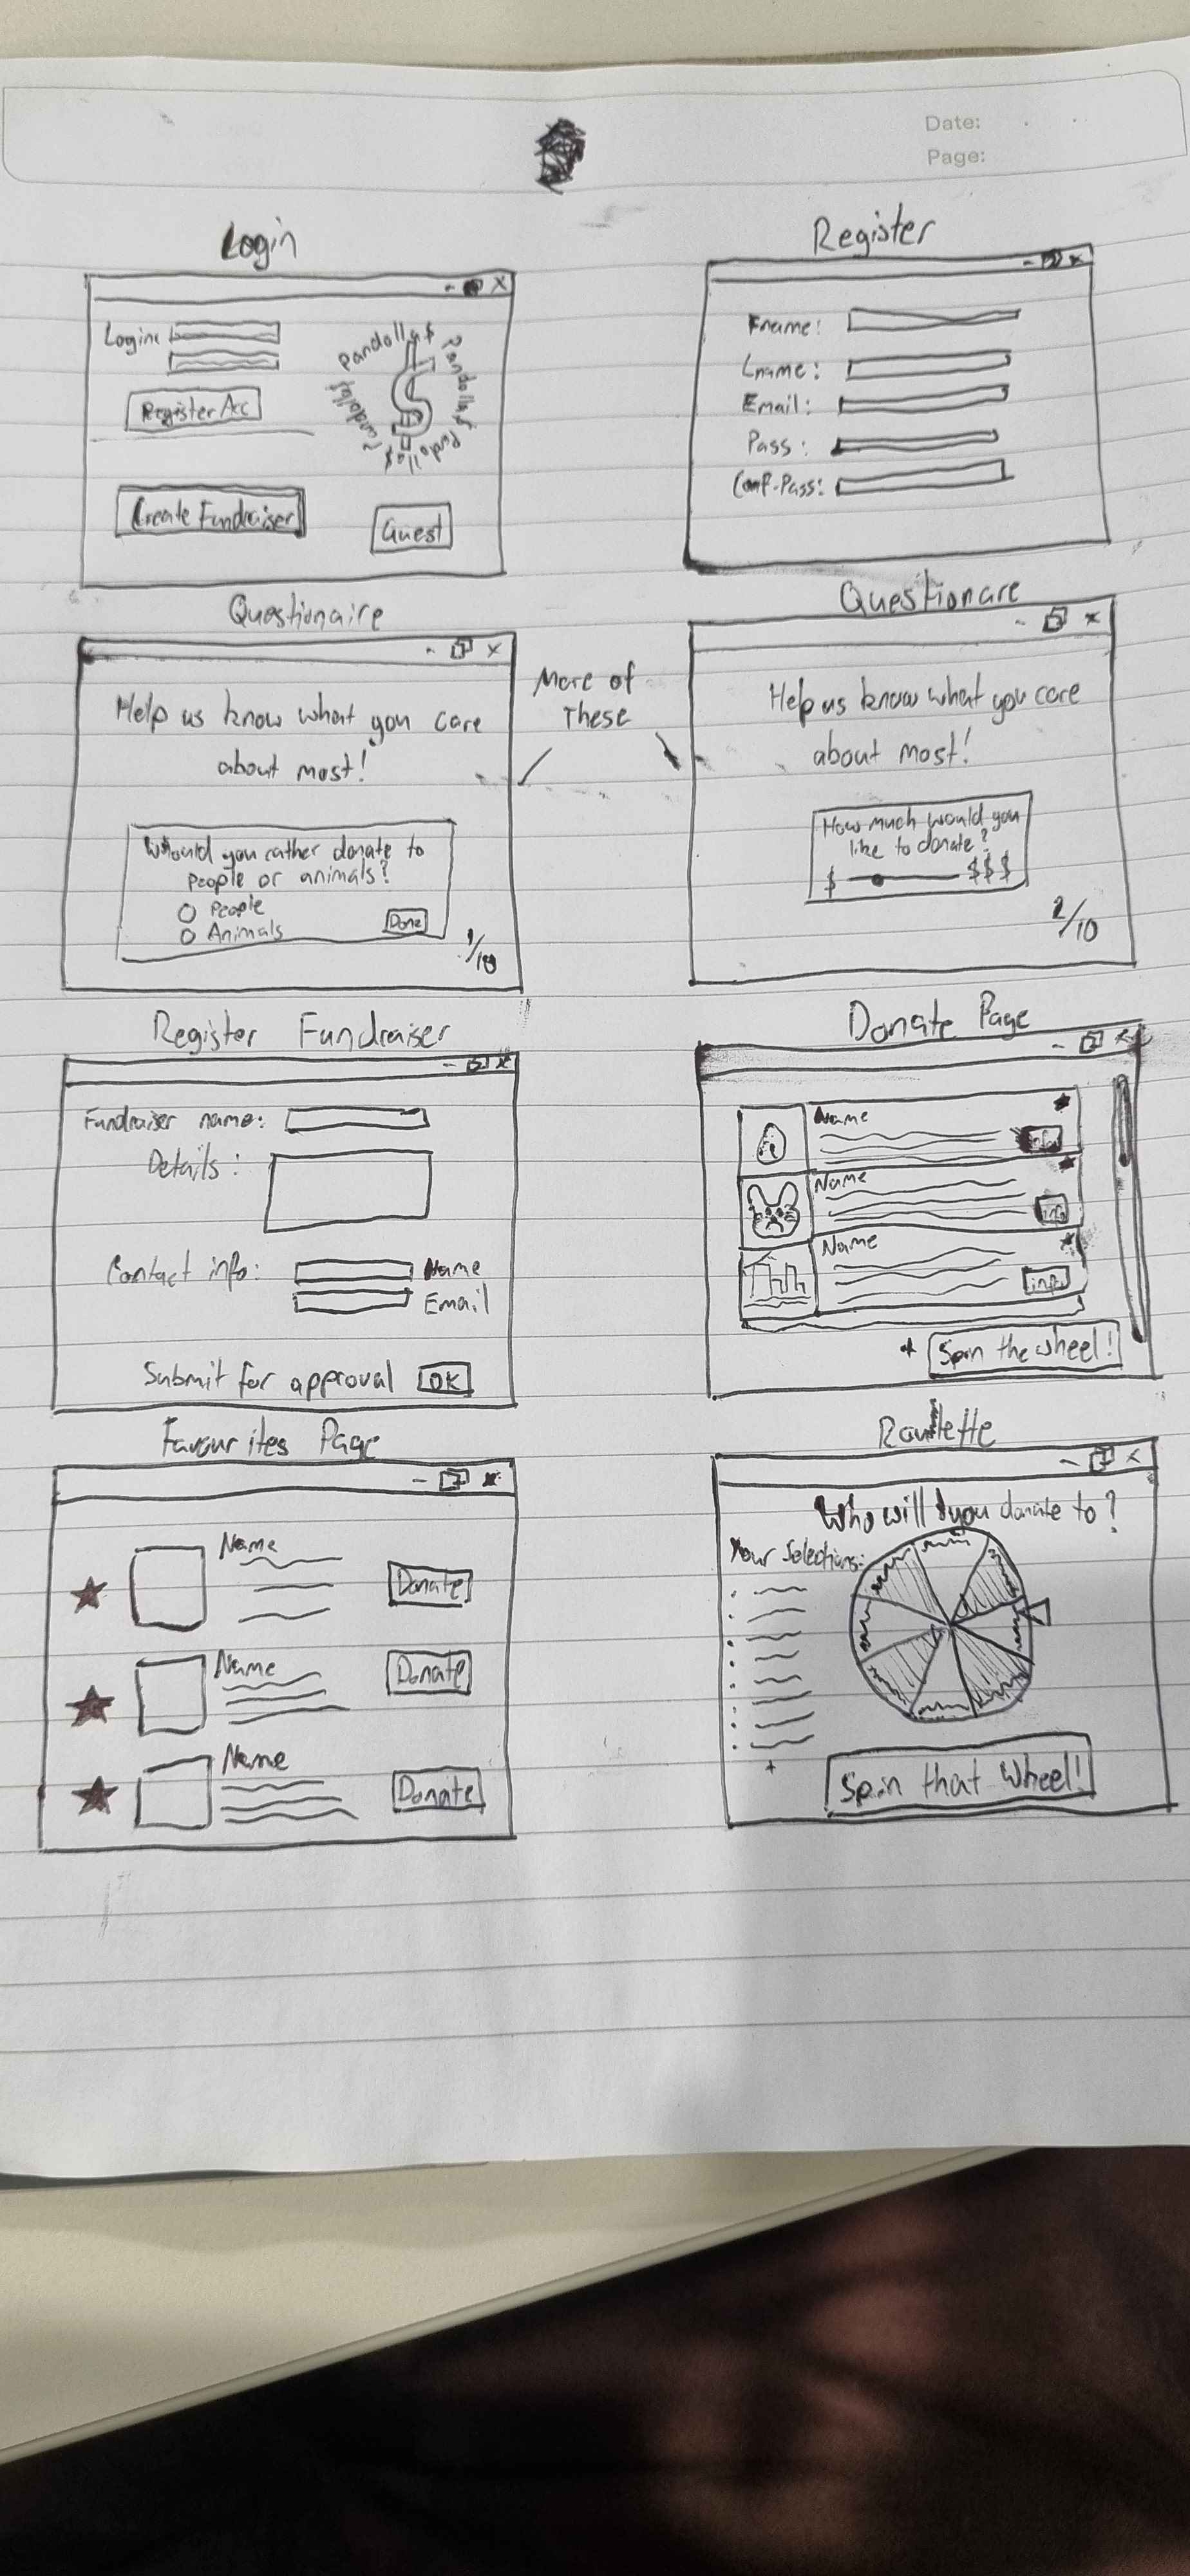 Date:
Page:
Login
Login:
Register Acc
Pandolla$
Pandolla$
Pandolla$
Pandolla$
$
Create Fundraiser
Guest
Register
Fname:
Lname:
Email:
Pass:
Conf-Pass:
Questionaire
Help us know what you care
about most!
Whould you rather donate to
People or animals?
People
Animals
Done
1/10
More of
These
Questionare
Help us know what you care
about most!
How much would you
like to donate?
$ $$$
2/10
Register Fundraiser
Fundraiser name:
Details:
Contact info: Name
Email
Submit for approval OK
Donate Page
Name
info
Name
info
Name
info
+ Spin the wheel!
Favourites Page
Name
Donate
Name
Donate
Name
Donate
Roulette
Who will you donate to?
Your Selections:
+
Spin that Wheel!